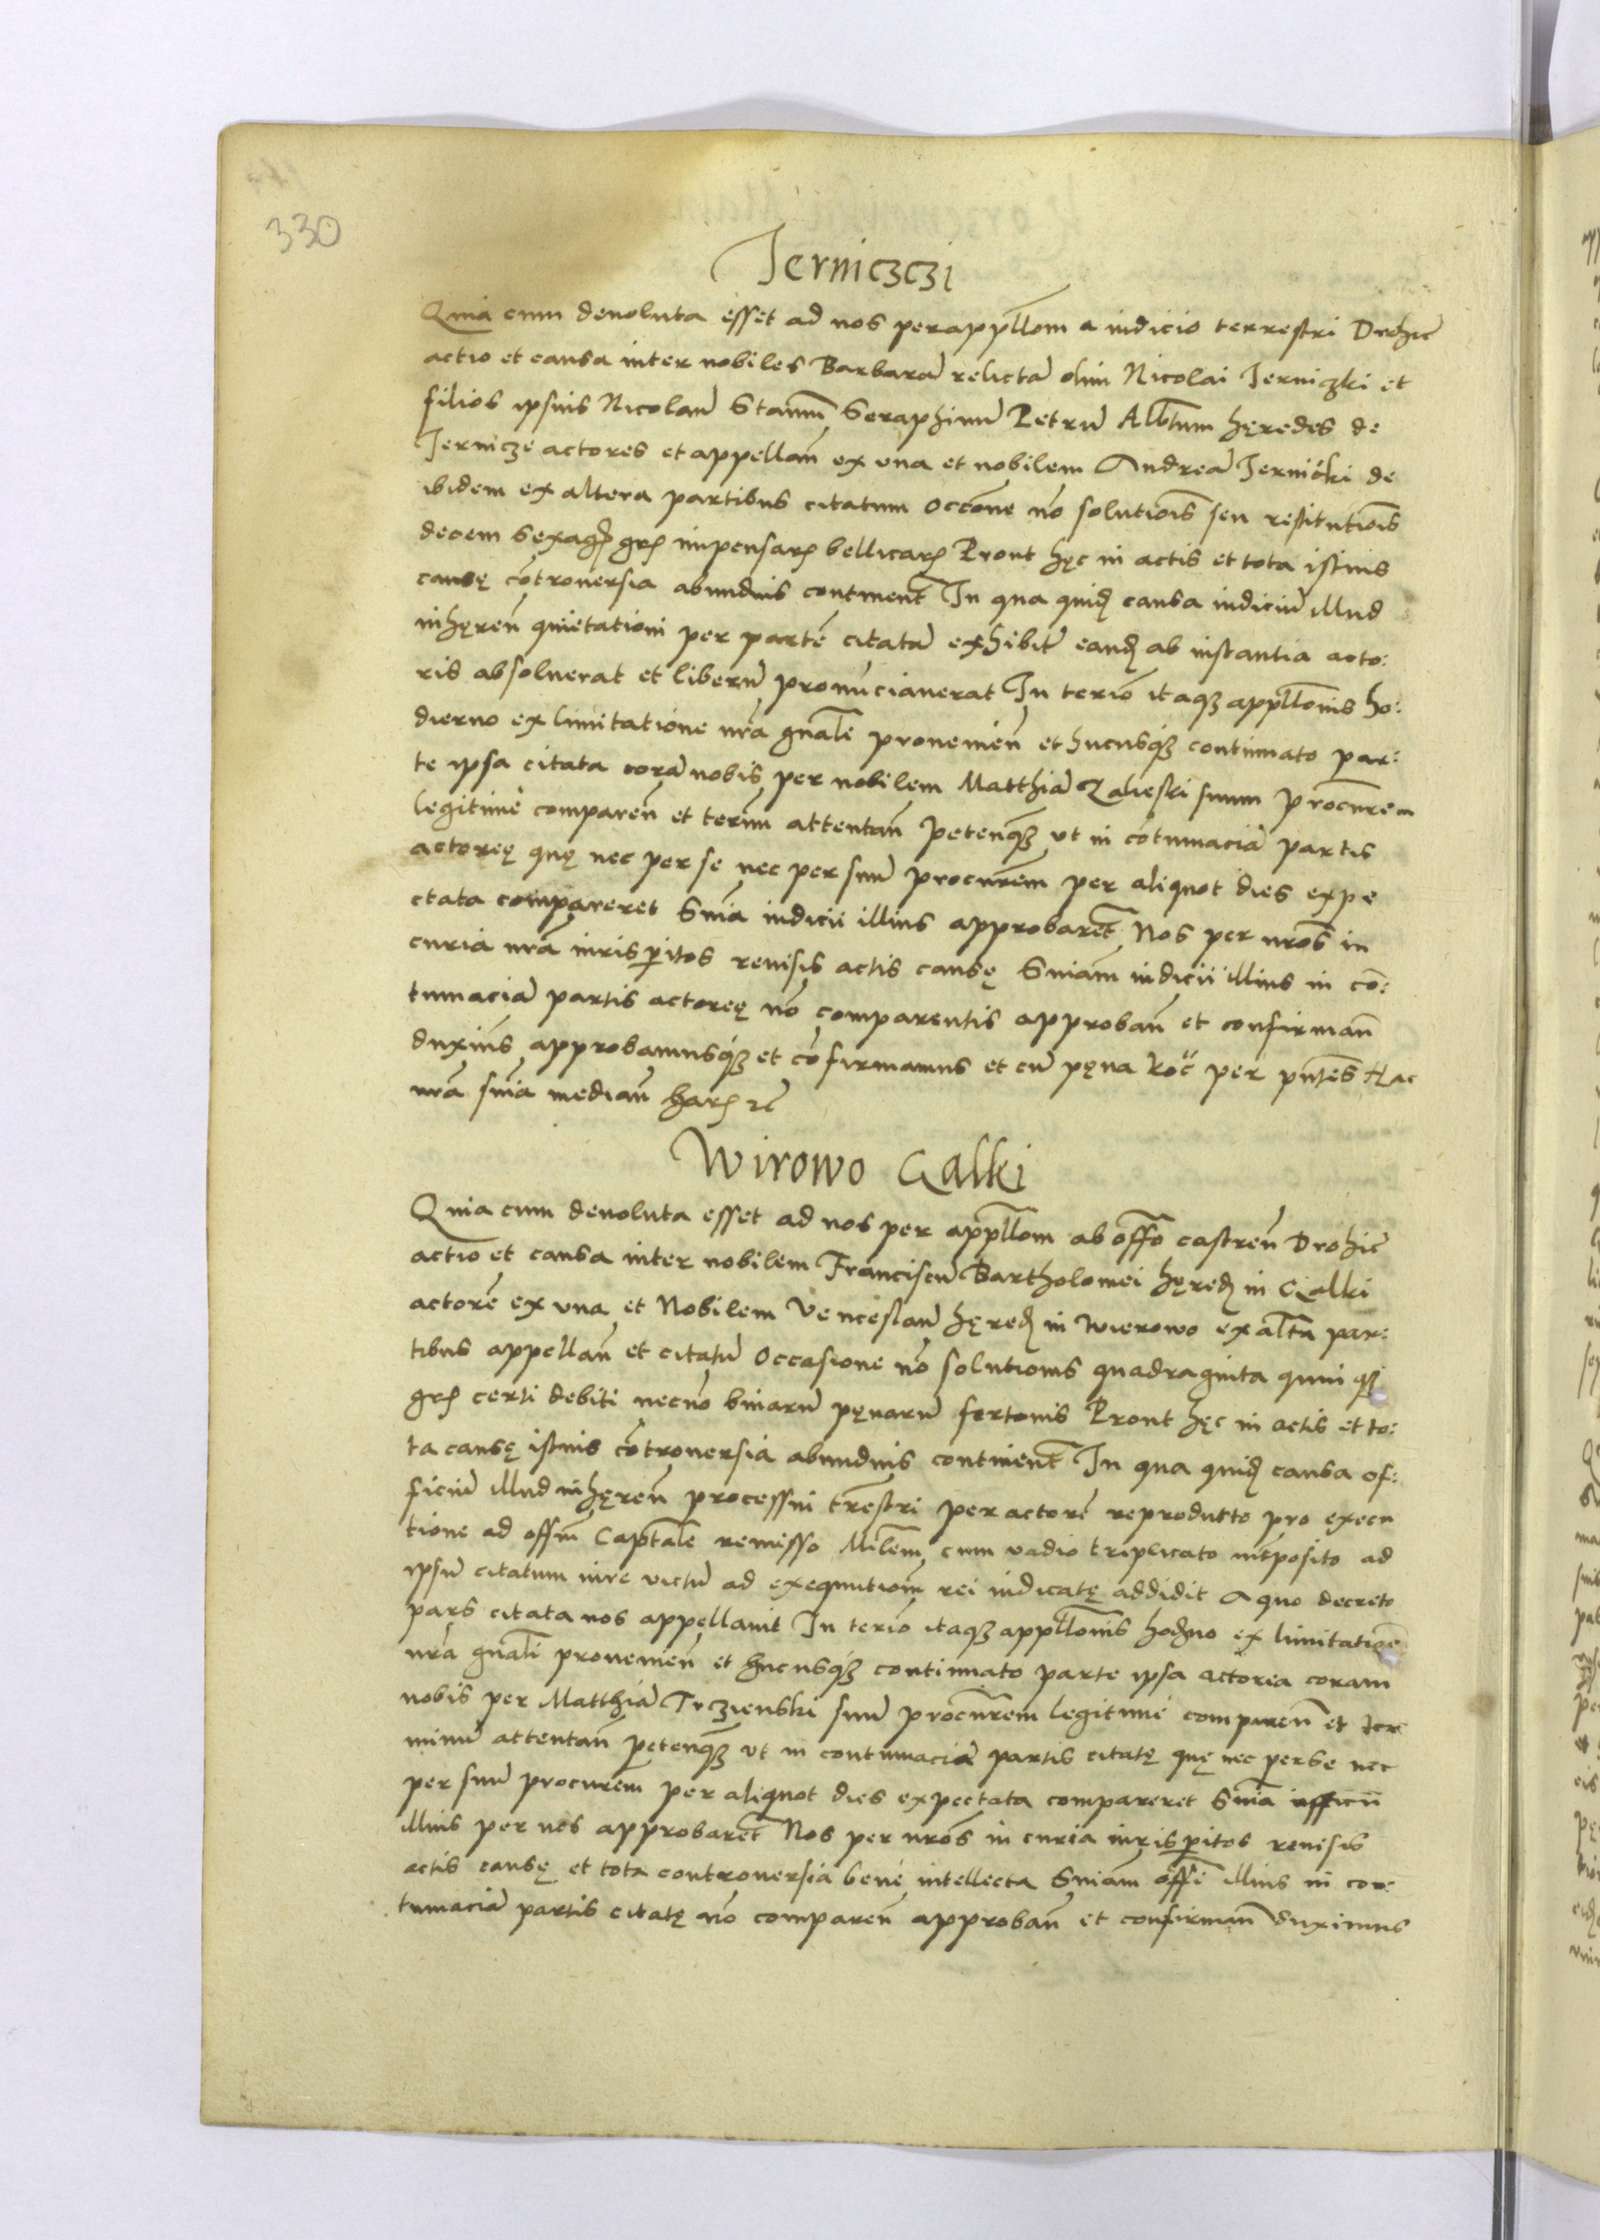 330
Jerniczczi
Quia cum deuoluta esset ad nos per appłłom a iudicio terrestri Drohic̃
actio et causa inter nobiles Barbarã relictã olim Nicolai Jerniczki et
filios ipsius Nicolaũ Stannũ Seraphinũ Petrũ Albtum hęredes de
Jernicze actores et appellañ ex vna et nobilem Andreã Jernicki de
ibidem ex altera partibus citatum occõne nõ solutiõis seu restitutiõis
decem sexageñ groš impensarũ bellicarũ Prout hęc in actis et tota istius
causę cõtrouersia abundius continent̃ In qua quidẽ causa iudiciũ illud
inhęreñ quietationi per partẽ citatã exhibitę eandẽ ab instantia acto:
ris absoluerat et liberũ pronũciauerat In teriõ itaqȝ appłłonis ho:
dierno ex limitatione nr̃a gnãle proueniẽn et hucusqȝ continuato par:
te ipsa citata corã nobis per nobilem Matthiã Zalieski suum procurẽm
legitime compareñ et termĩ attentañ petenqȝ vt in cõtumaciã partis
actoreę quę nec per se nec per suũ procurẽm per aliquot dies expe
ctata compareret Sniã iudicii illius approbaret̃ Nos per nr̃os in
curia nr̃a iurisperitos reuisis actis causę Sniãm iudicii illius in cõ:
tumaciã partis actoreę nõ comparentis approbañ et confirmañ
duximũs approbamusqȝ et cõfirmamus et cũ pęna Roč per pñtes Hac
nr̃a sñia mediañ harũ rc̃
Wirowo Czalki
Quia cum deuoluta esset ad nos per appłłom ab off̃o castreñ Drohic̃
actio et causa inter nobilem Franciscũ Bartholomei hęredẽ in Czalki
actorẽ ex vna et Nobilem Venceslaũ hęredẽ in Wierowo ex altã par:
tibus appellañ et citatũ Occasione nõ solutionis quadraginta quinqȝ
groš certi debiti necnõ binarũ pęnarũ fertonis Prout hęc in actis et to:
ta causę istius cõtrouersia abundius continent̃ In qua quidẽ causa of:
ficiũ illud inhęreñ processui tr̃estri per actorẽ reprodutto pro execu
tione ad off̃m Captãle remisso Milẽm cum vadio triplicato intẽposito ad
ipsũ citatum iure victũ ad exequutionẽm rei iudicatę addidit A quo decreto
pars citata nos appellauit In teriõ itaqȝ appłłonis hodiẽno ex limitatione
nr̃a gnãli proueniẽn et hucusqȝ continuato parte ipsa actorea coram
nobis per Matthiã Trzienski suũ procurẽm legitime compareñ et ter
minũ attentañ petenqȝ vt in contumaciã partis citatę quę nec per se nec
per suũ procurẽm per aliquot dies expectata compareret Sniã officii
illius per nos approbaret̃ Nos per nr̃os in curia iurisperitos reuisis
actis causę et tota controuersia bene intellecta Sniãm off̃i illius in con:
tumaciã partis citatę nõ compareñ approbañ et confirmañ duximus